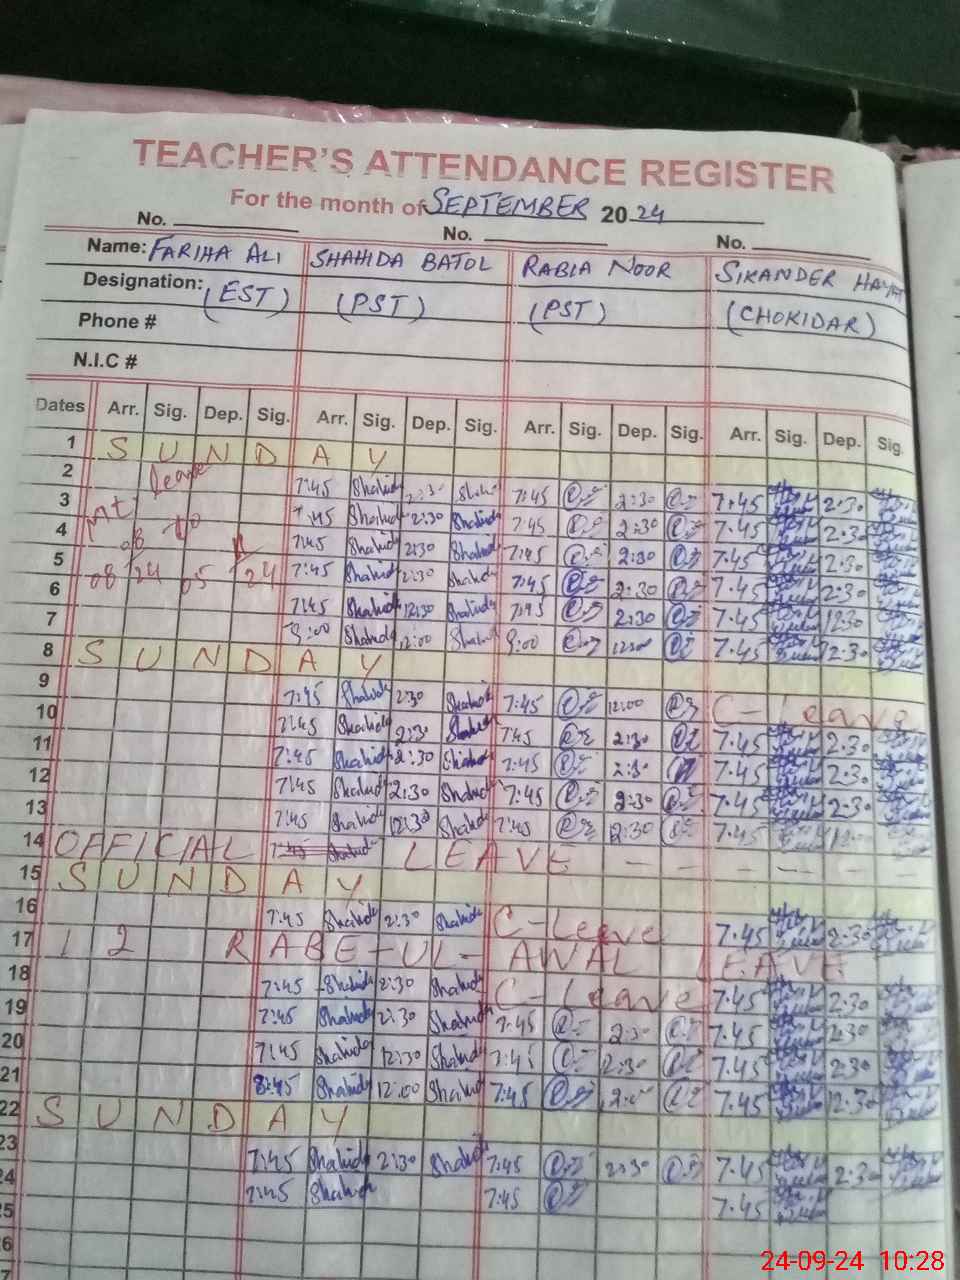 TEACHER'S ATTENDANCE REGISTER
For the month of SEPTEMBER 20 24
No. No. No.
Name: FARIHA ALI SHAHIDA BATOL RABIA NOOR SIKANDER HAYAT
Designation: (EST) (PST) (PST) (CHOKIDAR)
Phone #
N.I.C #
Dates Arr. Sig. Dep. Sig. Arr. Sig. Dep. Sig. Arr. Sig. Dep. Sig. Arr. Sig. Dep. Sig.
1 SUNDAY
2 leave 7:45 Shahida 2:30 Shahida 7:45 2:30 7:45 2:30
3 Mt 7:45 Shahida 2:30 Shahida 7:45 2:30 7:45 2:30
4 08 to 7:45 Shahida 2:30 Shahida 7:45 2:30 7:45 2:30
5 08 24 05 24 7:45 Shahida 2:30 Shahida 7:45 2:30 7:45 2:30
6 7:45 Shahida 12:30 Shahida 7:45 2:30 7:45 12:30
7 Shahida 12:00 Shahida 12:00 7:45 2:30
8 SUNDAY
9 7:45 Shahida 2:30 Shahida 7:45 12:00 C-Leave
10 7:45 Shahida 2:30 Shahida 7:45 2:30 7:45 2:30
11 7:45 Shahida 2:30 Shahida 7:45 2:30 7:45 2:30
12 7:45 Shahida 2:30 Shahida 7:45 2:30 7:45 2:30
13 7:45 Shahida 12:30 Shahida 7:45 12:30 7:45
14 OFFICIAL LEAVE
15 SUNDAY
16 7:45 Shahida 2:30 Shahida C-Leave 7:45 2:30
17 12 RABE-UL-AWAL LEAVE
18 7:45 Shahida 2:30 Shahida C-Leave 7:45 2:30
19 7:45 Shahida 2:30 Shahida 7:45 2:30 7:45 2:30
20 7:45 Shahida 12:30 Shahida 7:45 12:30 7:45 2:30
21 Shahida 12:00 Shahida 7:45 7:45 12:30
22 SUNDAY
23 7:45 Shahida 2:30 Shahida 7:45 2:30 7:45 2:30
24 7:45 Shahida 7:45 7:45
25
26
24-09-24 10:28